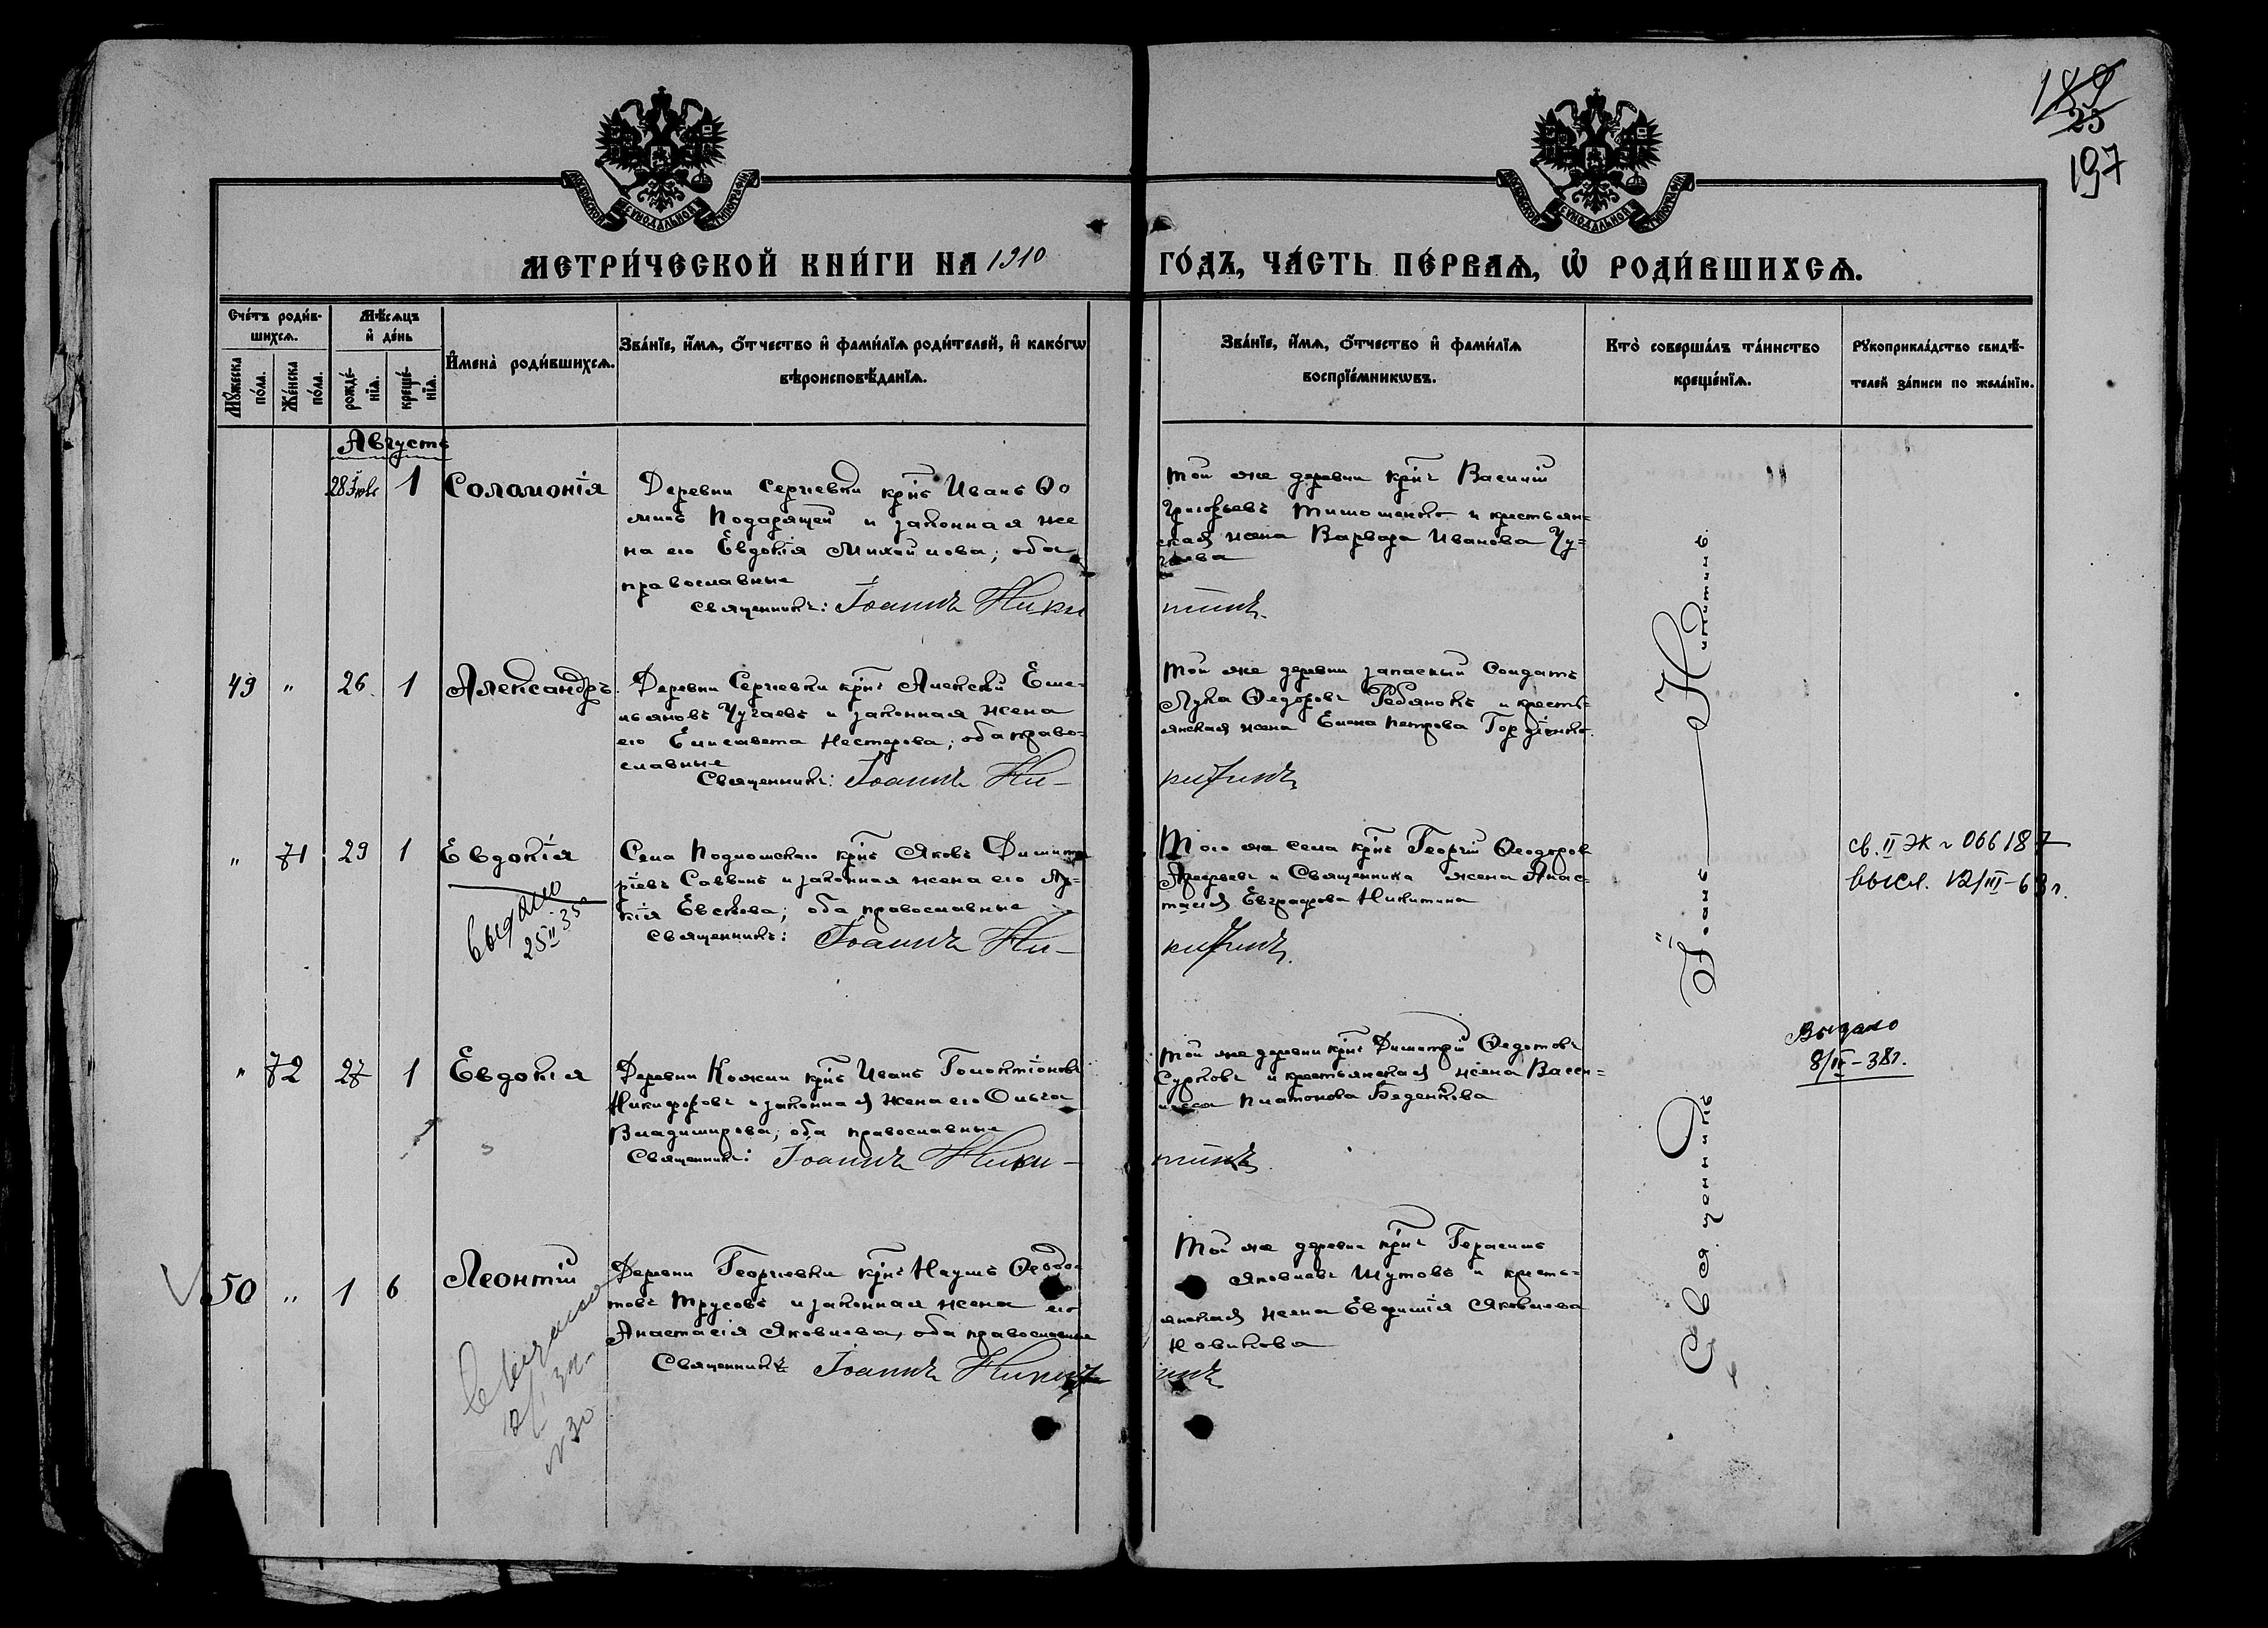 189
25
197
МОСКОВСКОЙ СѴНОДАЛЬНОЙ ТИПОГРАФІИ
МОСКОВСКОЙ СѴНОДАЛЬНОЙ ТИПОГРАФІИ
МЕТРИ́ЧЕСКОЙ КНИ́ГИ НА 1910 ГО́ДЪ, ЧА́СТЬ ПЕ́РВАѦ, Ѡ҆ РОДИ́ВШИХСѦ.
Сче́тъ роди́в-
шихсѧ.
Мꙋ́жеска по́ла.
Же́нска по́ла.
Мѣ́сѧцъ
и҆ де́нь
рожде́-
нїѧ.
креще́-
нїѧ.
И҆мена̀ роди́вшихсѧ.
Зва́нїе, и҆́мѧ, ѻ҆́тчество и҆ фами́лїѧ роди́телей, и҆ како́гѡ
вѣроисповѣ́данїѧ.
Зва́нїе, и҆́мѧ, ѻ҆́тчество и҆ фами́лїѧ
воспрїе́мникѡвъ.
Кто̀ соверша́лъ та́инство
креще́нїѧ.
Рꙋкоприкла́дство свидѣ́-
телей за́писи по жела́нїю.
Августъ
28 Іюля 1 Соломонія
Деревни Сергѣевки крнъ Иванъ Ѳо
минъ Подарящей и законная же
на его Евдокія Михайлова; оба
православные
Священникъ: Іоаннъ Ники
той же деревни крнъ Василій
Григорьевъ Тимошенко и крестьян=
ская жена Варвара Иванова Чу=
гаева
тинъ.
49 " 26. 1 Александръ.
Деревни Сергѣевки крнъ Алексѣй Еме-
льяновъ Чугаевъ и законная жена
его Елисавета Нестерова; оба право-
славные
Священникъ: Іоаннъ Ни-
той же деревни запасный солдатъ
Лука Ѳедоровъ Ребянокъ и кресть-
янская жена Елена Петрова Гордіенко.
китинъ
" 71 29 1 Евдокія
выдано
25 II 35
Села Подмошскаго крнъ Яковъ Димит
ріевъ Саввинъ и законная жена его
Евскова; оба православные
Священникъ: Іоаннъ Ни-
Того же села крнъ Георгій Ѳеодоров
и Священника жена Анас-
тасія Евграфова Никитина
китинъ.
св. II ЭК № 066187
высл. 12/III-63 г.
" 72 27 1 Евдокія
Деревни Кожин крнъ Иванъ Голоктіоновъ
Никифоровъ и законная жена его Ольга
Владимирова; оба православные
Священникъ: Іоаннъ Ники-
той же деревни крнъ Димитрій Ѳедотовъ
Сурковъ и крестьянская жена Васси-
лисса Платонова Беденкова
тинъ
Выдано
8/IV-38г.
50 " 1 6 Леонтій
Деревни Георгіевки крнъ Наумъ Ѳеодо-
товъ Трусовъ и законная жена его
Анастасія Яковлева, оба православные
Священникъ Іоаннъ Никит
Той же деревни крнъ Герасимъ
Яковлевъ Шутовъ и кресть-
янская жена Евфимія Яковлева
Новикова
инъ
№ 30
Священникъ Іоаннъ Никитинъ.